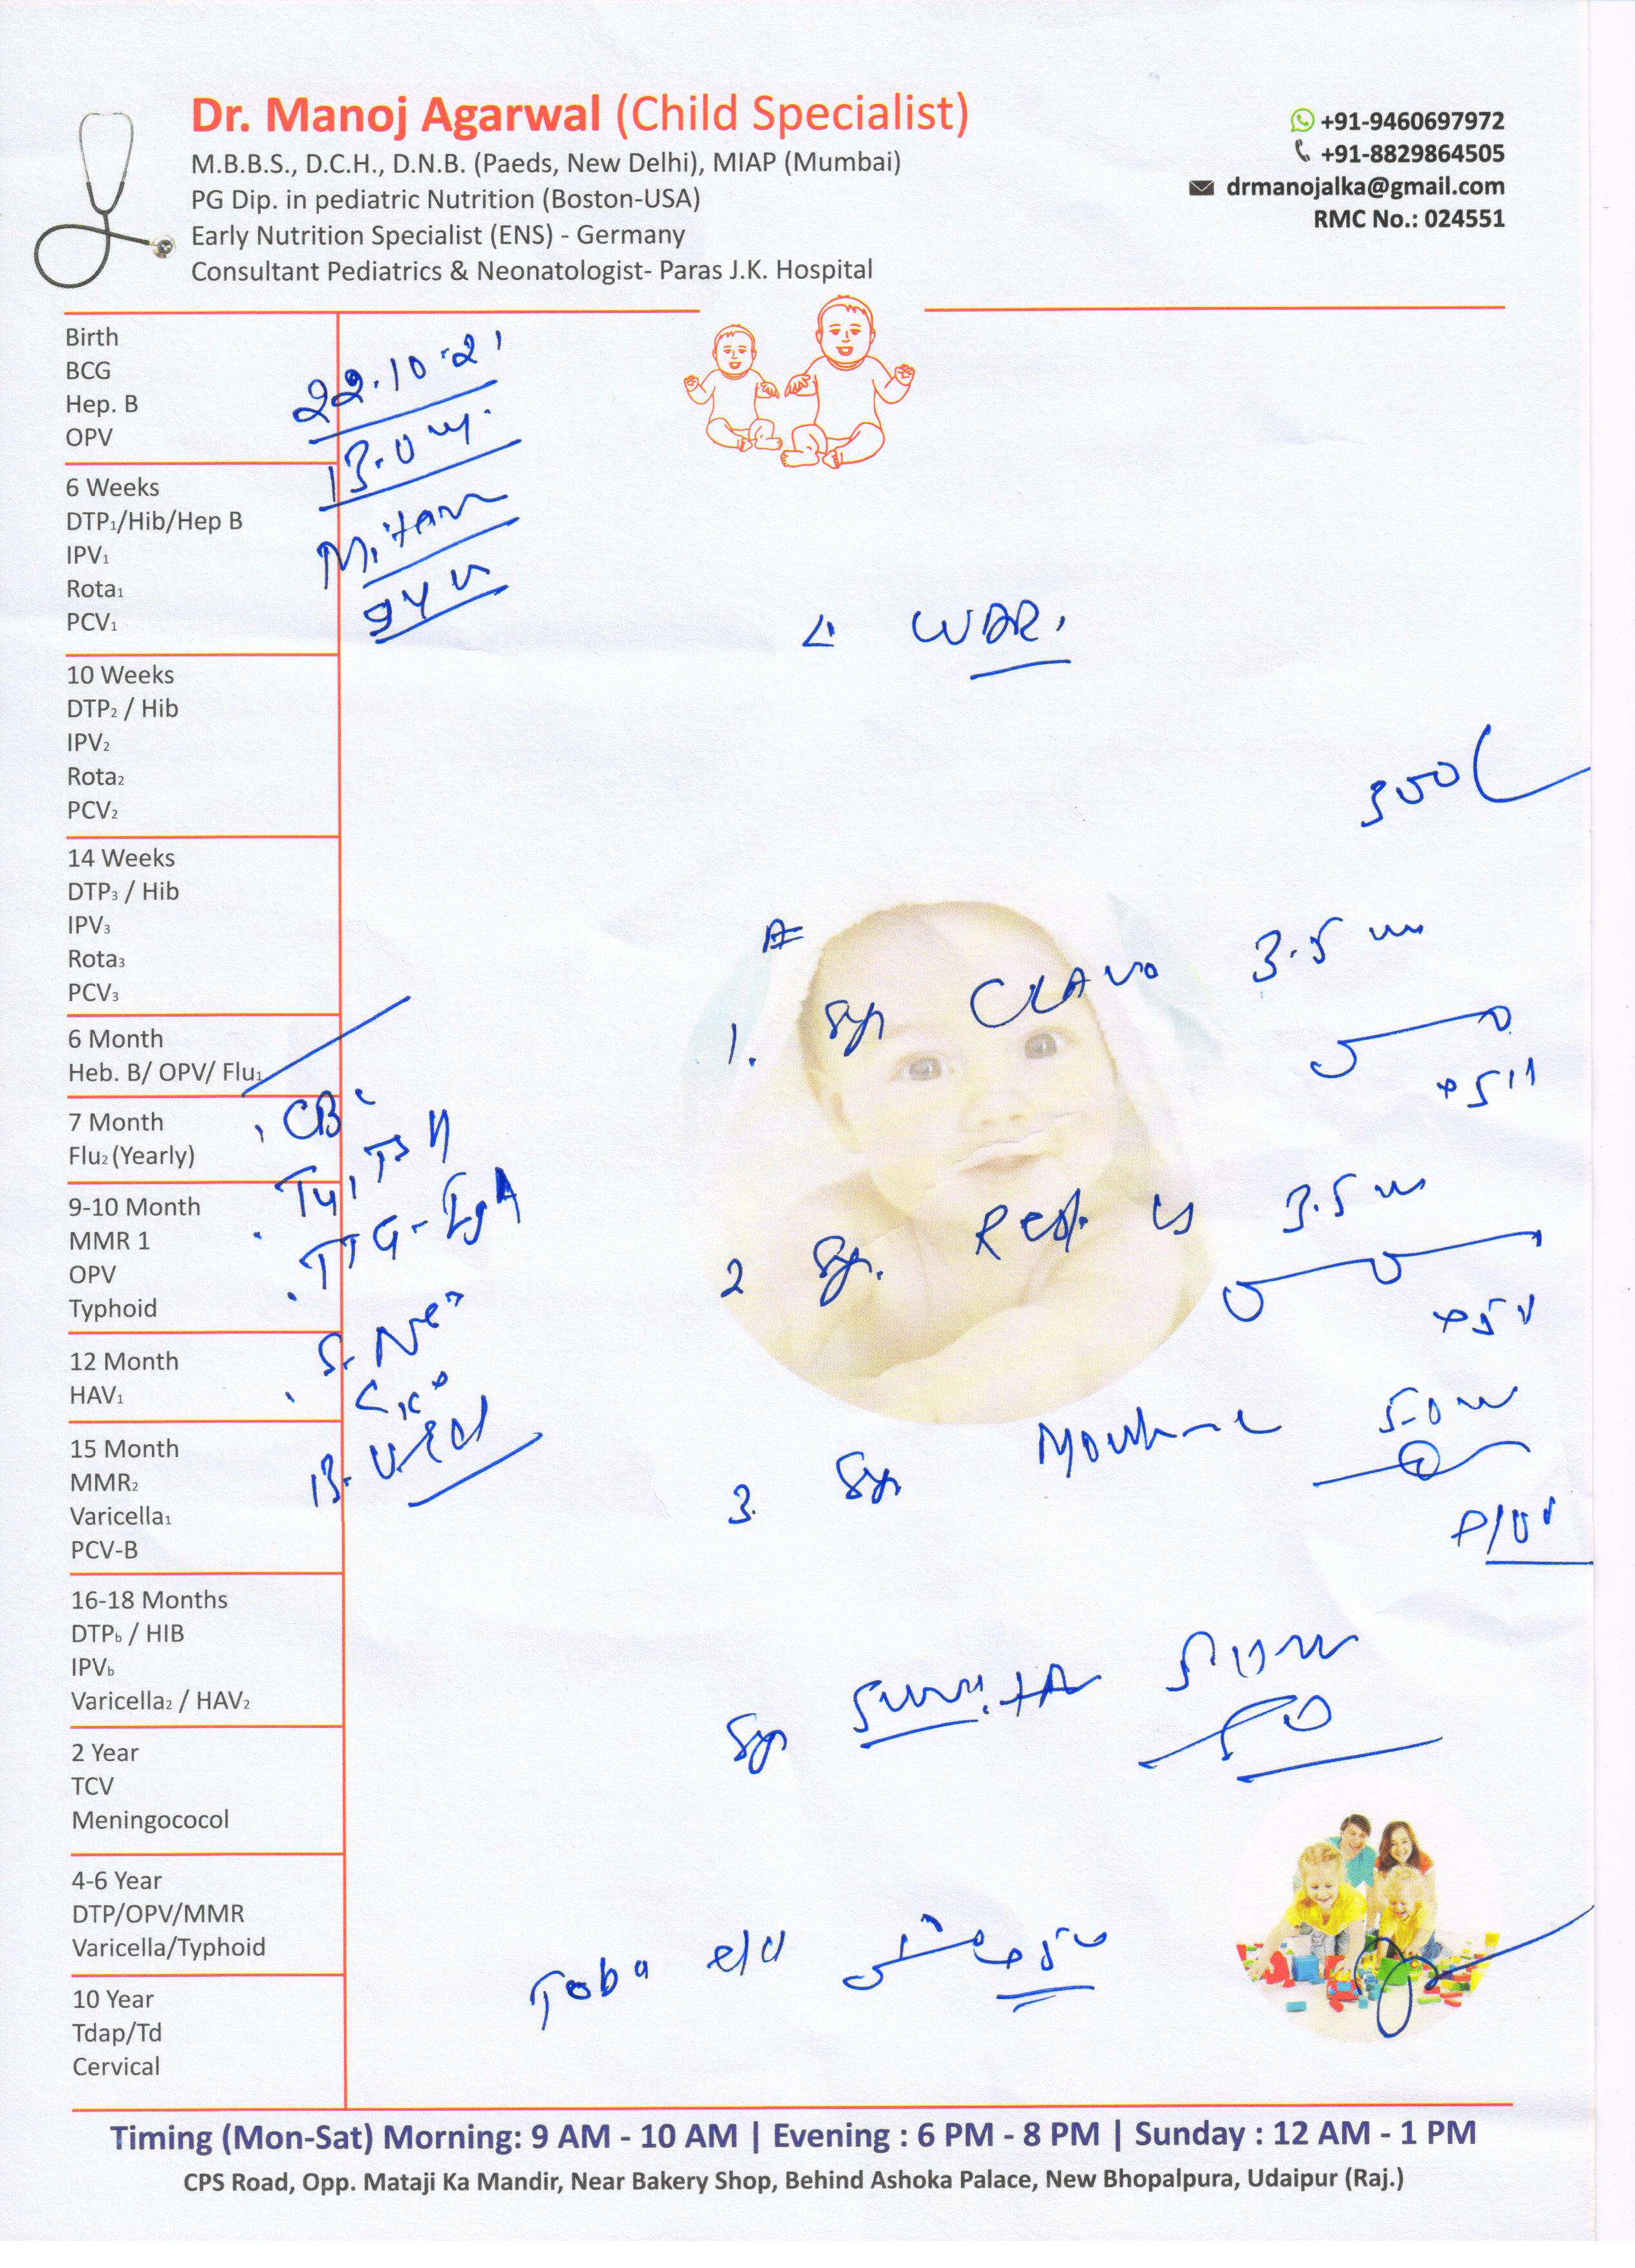 Dr. Manoj Agarwal (Child Specialist)
M.B.B.S., D.C.H., D.N.B. (Paeds, New Delhi), MIAP (Mumbai)
PG Dip. in pediatric Nutrition (Boston-USA)
Early Nutrition Specialist (ENS) - Germany
Consultant Pediatrics & Neonatologist- Paras J.K. Hospital
+91-9460697972
+91-8829864505
drmanojalka@gmail.com
RMC No.: 024551
Birth
BCG
Hep. B
OPV
6 Weeks
DTP₁/Hib/Hep B
IPV₁
Rota₁
PCV₁
10 Weeks
DTP₂ / Hib
IPV₂
Rota₂
PCV₂
14 Weeks
DTP₃ / Hib
IPV₃
Rota₃
PCV₃
6 Month
Heb. B/ OPV/ Flu₁
7 Month
Flu₂ (Yearly)
9-10 Month
MMR 1
OPV
Typhoid
12 Month
HAV₁
15 Month
MMR₂
Varicella₁
PCV-B
16-18 Months
DTPb / HIB
IPVb
Varicella₂ / HAV₂
2 Year
TCV
Meningococol
4-6 Year
DTP/OPV/MMR
Varicella/Typhoid
10 Year
Tdap/Td
Cervical
22.10.21
13.0
CBC
T4, TSH
TTG-IgA
1. Syp CLAVO 3.5
2 Syp. 3.5
3. Syp 5.0
Syp
Timing (Mon-Sat) Morning: 9 AM - 10 AM | Evening : 6 PM - 8 PM | Sunday : 12 AM - 1 PM
CPS Road, Opp. Mataji Ka Mandir, Near Bakery Shop, Behind Ashoka Palace, New Bhopalpura, Udaipur (Raj.)